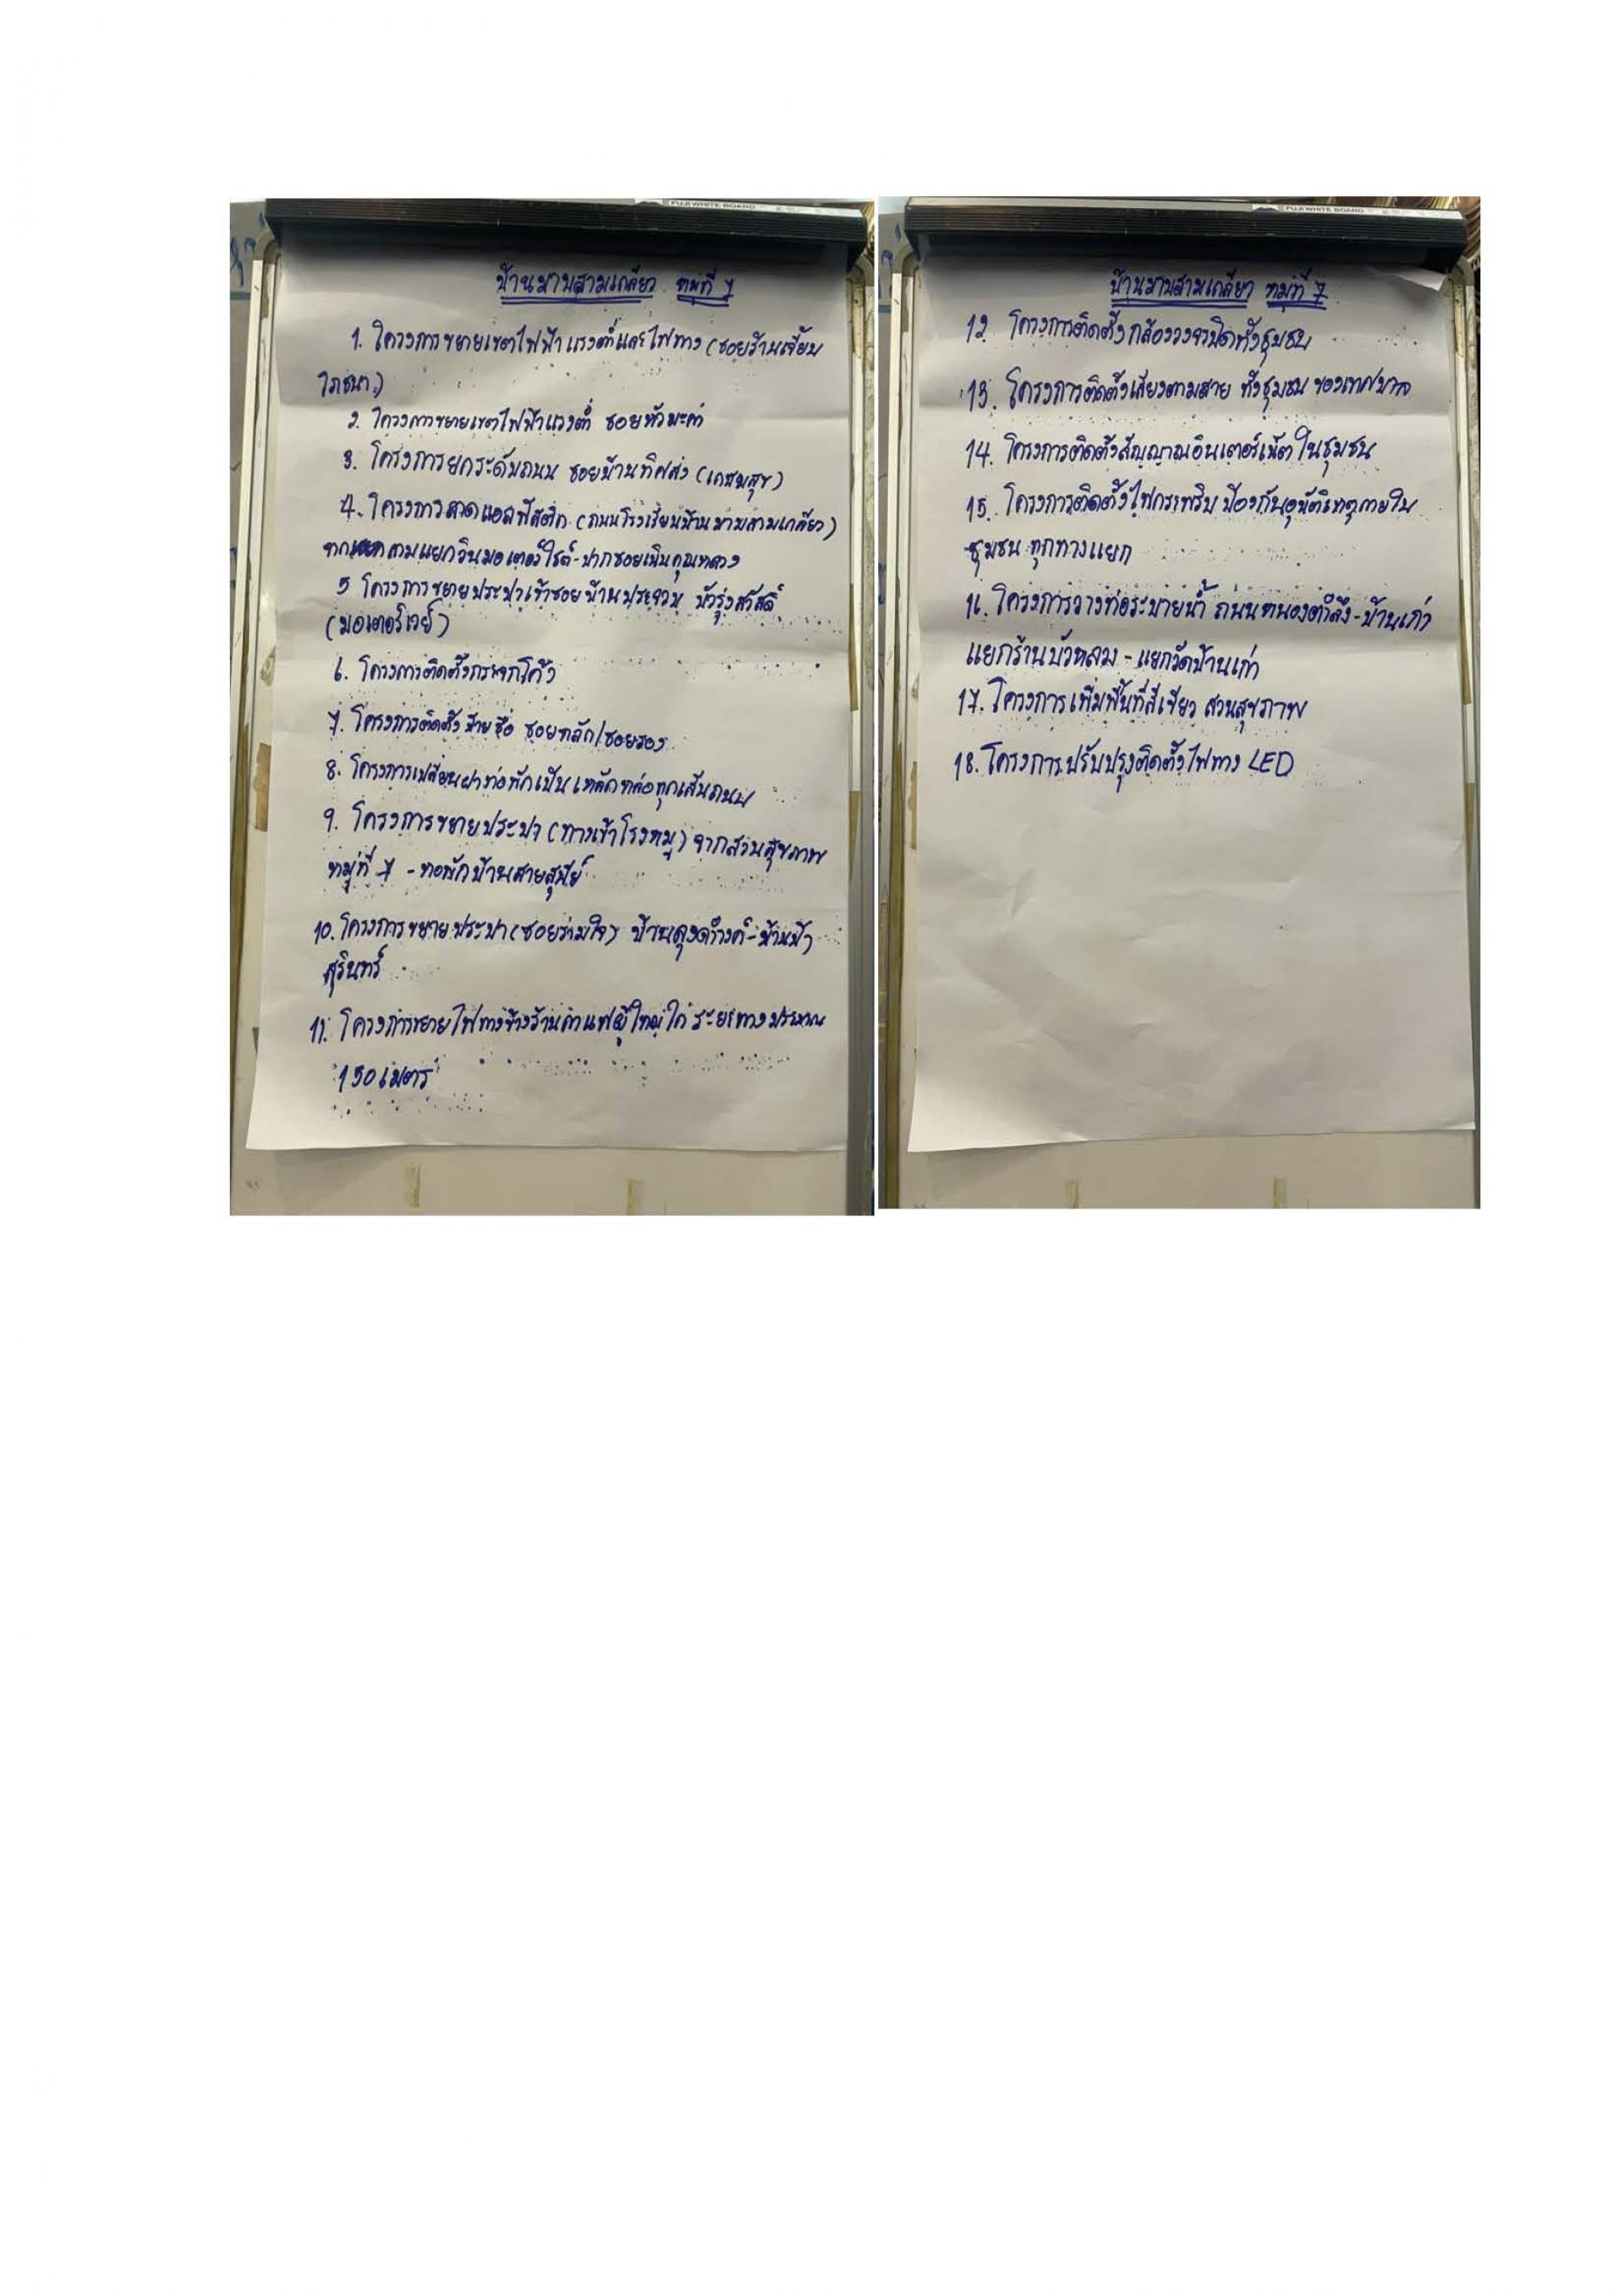 FUJI WHITE BOARD
บ้านมาบสามเกลียว หมู่ที่ 7
1. โครงการขยายเขตไฟฟ้าแรงต่ำและไฟทาง (ซอยร้านเจี๊ยบ
โภชนา)
2. โครงการขยายเขตไฟฟ้าแรงต่ำ ซอยหัวมะค่า
3. โครงการยกระดับถนน ซอยบ้านทิศส่ง (เกษมสุข)
4. โครงการลาดแอสฟัลติก (ถนนโรงเรียนบ้านมาบสามเกลียว)
สามแยกวินมอเตอร์ไซต์-ปากซอยเนินคุณหลวง
5 โครงการขยายประปาเข้าซอยบ้านประจวบ บัวรุ่งสวัสดิ์
(มอเตอร์เวย์)
6. โครงการติดตั้งกระจกโค้ง
7. โครงการติดตั้งป้ายชื่อ ซอยหลัก/ซอยรอง
8. โครงการเปลี่ยนฝาท่อพักเป็นเหล็กหล่อทุกเส้นถนน
9. โครงการขยายประปา (ทางเข้าโรงหมู) จากสวนสุขภาพ
หมู่ที่ 7 - หอพักบ้านสายสุนีย์
10. โครงการขยายประปา (ซอยร่วมใจ) บ้านลุงดำรงค์-บ้านป้า
สุรินทร์
11. โครงการขยายไฟทางข้างร้านกาแฟผู้ใหญ่ไก่ ระยะทางประมาณ
150 เมตร
FUJI WHITE BOARD
บ้านมาบสามเกลียว หมู่ที่ 7
12. โครงการติดตั้งกล้องวงจรปิดทั้งชุมชน
13. โครงการติดตั้งเสียงตามสาย ทั้งชุมชน ของเทศบาล
14. โครงการติดตั้งสัญญาณอินเตอร์เน็ตในชุมชน
15. โครงการติดตั้งไฟกระพริบ ป้องกันอุบัติเหตุภายใน
ชุมชน ทุกทางแยก
16. โครงการวางท่อระบายน้ำ ถนนหนองตำลึง-บ้านเก่า
แยกร้านบัวหลม - แยกวัดบ้านเก่า
17. โครงการเพิ่มพื้นที่สีเขียว สวนสุขภาพ
18. โครงการปรับปรุงติดตั้งไฟทาง LED